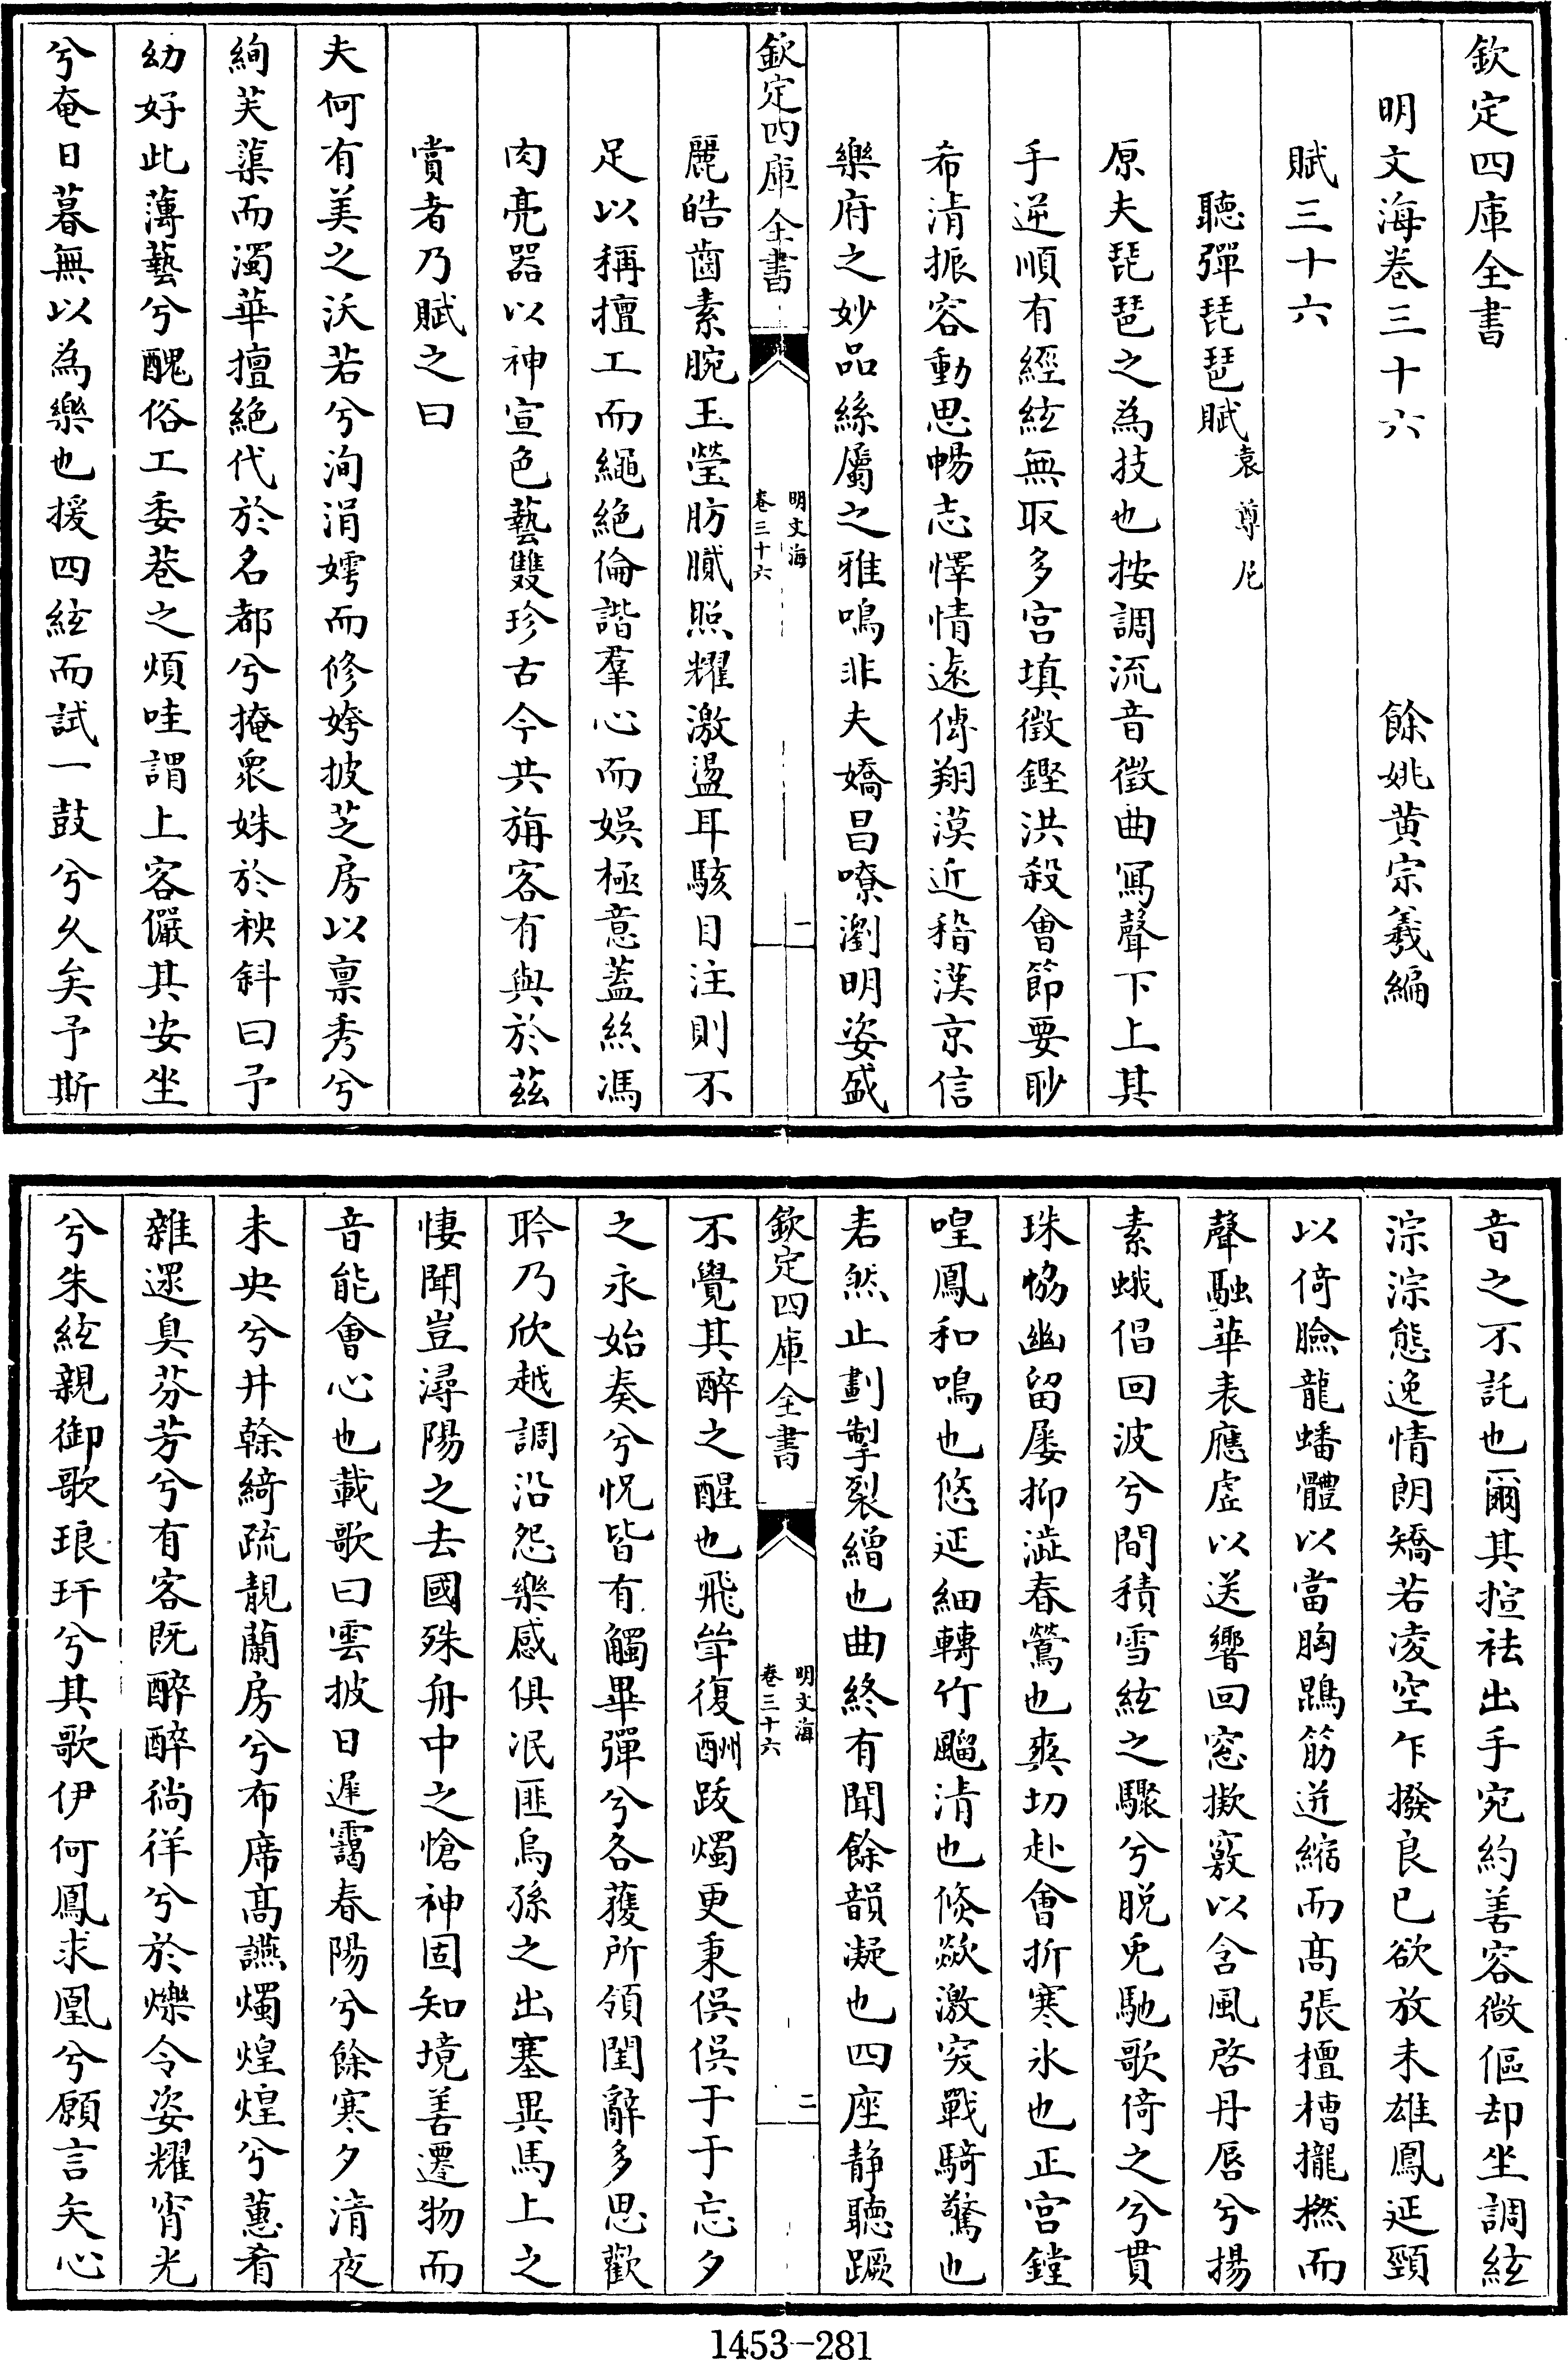 欽定四庫全書
明文海卷三十六　　　餘姚黄宗羲編
賦三十六
聽彈琵琶賦袁尊尼
原夫琵琶之為技也按調流音徵曲寫聲下上其
手逆順有經絃無取多宫填徵鏗洪殺會節要眇
希清振容動思暢志懌情遠傳翔漠近稽漢京信
樂府之妙品絲屬之雅鳴非夫嬌昌嘹瀏明姿盛
欽定四庫全書
明文海
卷三十六
一
麗皓齒素腕玉瑩肪膩照耀激盪耳駭目注則不
足以稱擅工而繩絶倫諧羣心而娛極意蓋絲馮
肉亮器以神宣色藝雙珍古今共旃客有與於兹
賞者乃賦之曰
夫何有美之沃若兮洵涓嫮而修姱披芝房以禀秀兮
絢芙蕖而濯華擅絶代於名都兮掩衆姝於秧斜曰予
幼好此薄藝兮醜俗工委巷之煩哇謂上客儼其安坐
兮奄日暮無以為樂也援四絃而試一鼓兮久矣予斯
音之不託也爾其揎袪出手宛約善容微傴却坐調絃
淙淙態逸情朗矯若凌空乍撥良已欲放未雄鳳延頸
以倚臉龍蟠體以當胸鵾筋迸縮而高張檀槽攏撚而
聲融華表應虛以送響回窓擬竅以含風啓丹唇兮揚
素蛾倡回波兮間積雪絃之驟兮脱兎馳歌倚之兮貫
珠恊幽留屡抑澁春鶯也爽切赴會折寒氷也正宫鏜
喤鳳和鳴也悠延細轉竹飀清也倐歘激突戰騎驚也
砉然止劃掣裂繒也曲終有聞餘韻凝也四座静聽蹶
欽定四庫全書
明文海
卷三十六
二
不覺其醉之醒也飛斚復酬跋燭更秉俣俣于于忘夕
之永始奏兮怳皆有觸畢彈兮各獲所領閨辭多思歡
聆乃欣越調沿怨樂感俱泯匪烏孫之出塞異馬上之
悽聞豈潯陽之去國殊舟中之愴神固知境善遷物而
音能會心也載歌曰雲披日遲靄春陽兮餘寒夕清夜
未央兮井榦綺疏靚蘭房兮布席高讌燭煌煌兮蕙肴
雜遝臭芬芳兮有客既醉醉徜徉兮於爍令姿耀宵光
兮朱絃親御歌琅玕兮其歌伊何鳳求凰兮願言矢心
1453-281